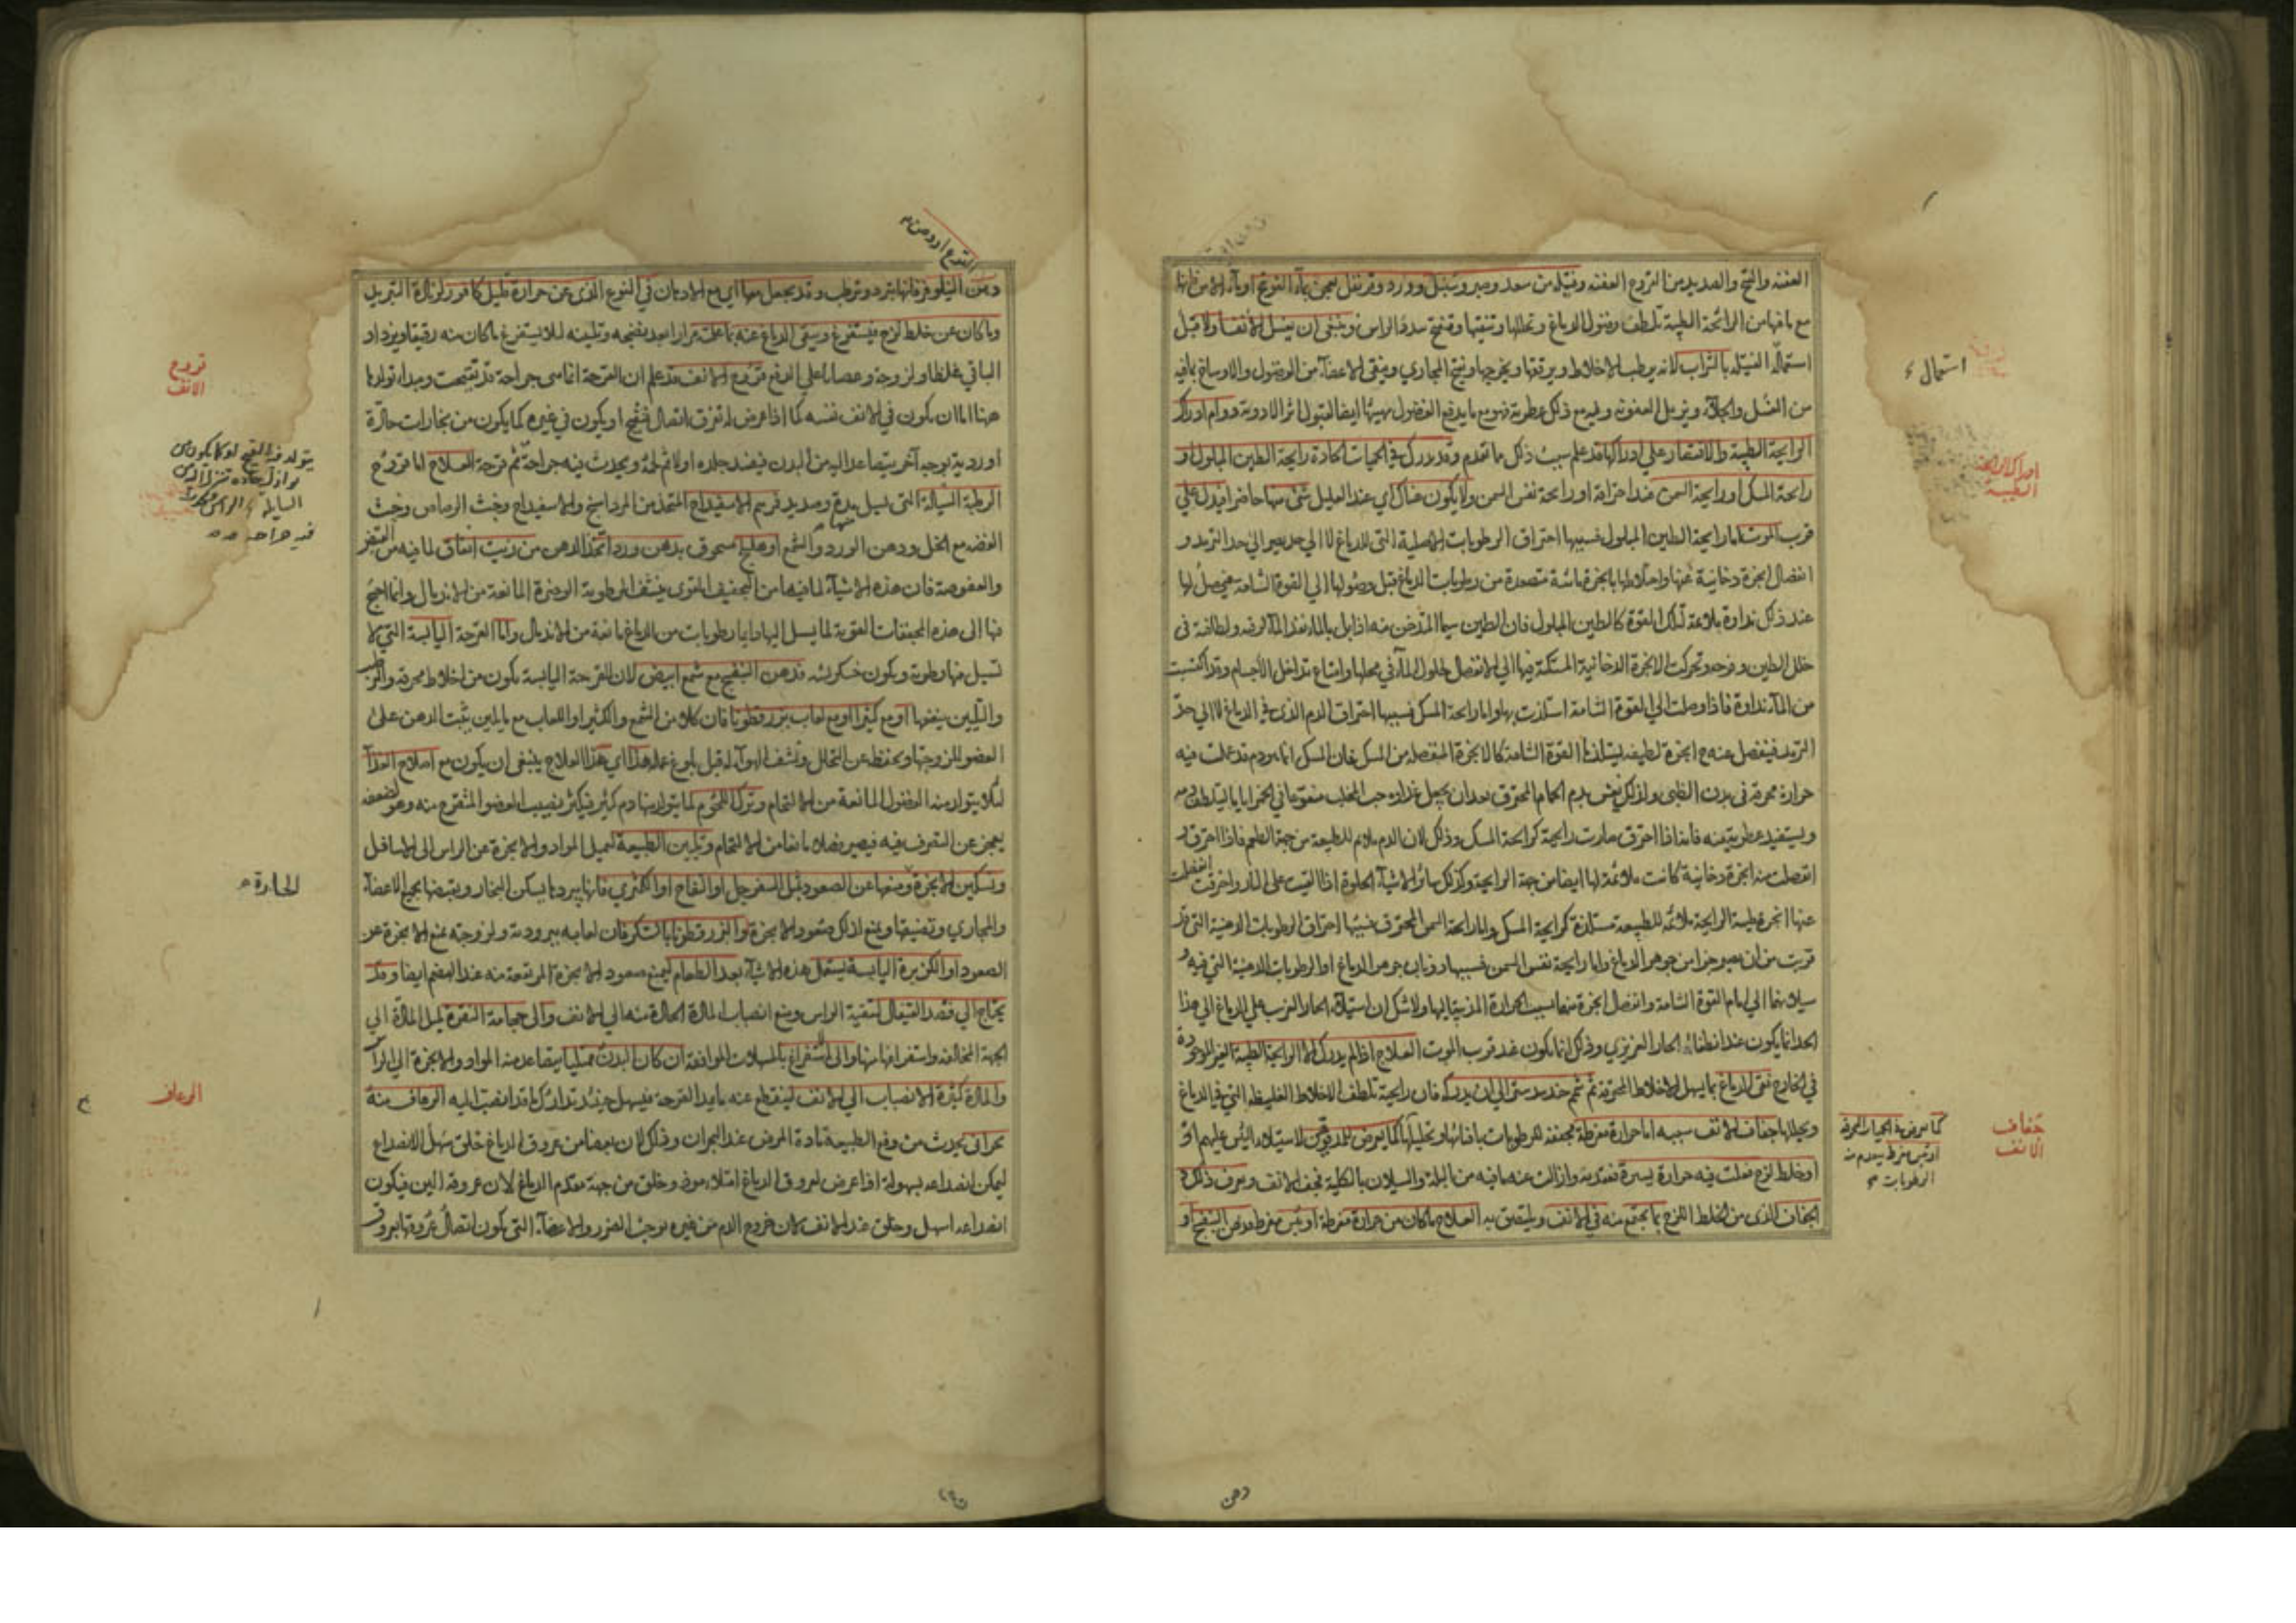 العفنه والقيح والصديد من القروح العفنه وفتيله من سعد ومر وسنبل وورد وقرنفل يعجن بماء الفوتنج او بماء الآس فانها
مع ما فيها من الرائحة الطيبة تلطف فضول الدماغ وتحللها وتنقيها وتفتح سدد الراس وينبغي ان يغسل الانف اولا قبل
استعمال الفتيله بالشراب لانه يرطب الاخلاط ويرققها ويخرجها ويفتح المجاري وينقي الاعضاء من الفضول والاوساخ بما فيه
من الغسل والجلاء ويزيل العفونه وفيه مع ذلك عطرية فهو مع ما يدفع الفضول يهيئها ايضا لقبول اثر الادوية ودوام ادراك
الرايحة الطيبة والاقتصار على ادراكها قد علم سبب ذلك ما تقدم وقد يدرك في الحميات الحادة رايحة الطين المبلول او
رايحة المسك او رايحة السمن عند احتراقه او رايحة نفس السمن ولا يكون هناك اي عند العليل شئ منها حاضرا فيدل على
قرب الموت اما رايحة الطين المبلول فسببها احتراق الرطوبات الاصلية التي للدماغ لا الى حد يصير الى حد الترمد و
انفصال ابخرة دخانية عنها واختلاطها بابخرة مائية متصعدة من رطوبات الدماغ قبل وصولها الى القوة الشامة فيحصل لها
عند ذلك نداوة بملاءمة تلك القوة كالطين المبلول فان الطين سيما المتدخن منه اذا بل بالماء نفذ الماء لرقته ولطافته في
خلل الطين وفرجه وتحركت الابخرة الدخانية المستكنة فيها الى الانفصال لحلول الماء في محلها وامتناع تداخل الاجسام وقد اكتسبت
من الماء نداوة فاذا وصلت الى القوة الشامة استلذت بها واما رايحة المسك فسببها احتراق الدم الذي في الدماغ لا الى حد
الترمد فينفصل عنه ح ابخرة لطيفه يستلذ بها القوة الشامة كالابخرة المنفصله من المسك فان المسك انما هو دم قد عملت فيه
حرارة محرقة في بدن الظبي ولذلك يغش بدم الحمام المحرق بعد ان يجعل غذاؤه حب المحلب منقوعا في الخمر اياما ليتلطف دمه
ويستفيد عطرية منه فانه اذا احترق صارت رايحته كرايحة المسك وذلك لان الدم ملايم للطبيعة من جهة الطعم فاذا احترق و
انفصلت منه ابخرة دخانية كانت ملائمة لها ايضا من جهة الرايحة وكذلك سائر الاشياء الحلوة اذا القيت على النار واحترقت انفصلت
عنها ابخرة طيبة الرايحة ملائمة للطبيعة مستلذة كرايحة المسك واما رايحة السمن المحترق فسببها احتراق الرطوبات الدهنية التي قد
قربت من ان تصير جزا من جوهر الدماغ واما رايحة نفس السمن فسببها ذوبان جوهر الدماغ او الرطوبات الدهنية التي فيه و
سيلانها الى امام القوة الشامة وانفصال ابخرة منها بسبب الحرارة المذيبة اليها ولا شك ان استيلاء الحار الغريب على الدماغ الى هذا
الحد انما يكون عند انطفاء الحار الغريزي وذلك انما يكون عند قرب الموت العلاج اذا لم يدرك الا الرايحة الطيبة الغير الموجودة
في الخارج نقي الدماغ بما يسهل الاخلاط المحترقة ثم شم جندبيدستر الى ان يدركه فان رايحته تلطف الاخلاط الغليظه التي في الدماغ
ويحللها جفاف الانف سببه اما حرارة مفرطة مجففة للرطوبات بافنائها وتحليلها كما يعرض للمدقوقين لاستيلاء اليبس عليهم او
او خلط لزج فعلت فيه حرارة يسيرة فعقدته وازالت عنه ما فيه من البلة والسيلان بالكلية فجف الانف ويعرف ذلك
الجفاف الذي من الخلط اللزج بما يجتمع منه في الانف ويلتصق به العلاج ما كان من حرارة مفرطة او يبس مفرط فدهن البنفسج او
استعمال
ادراك الرايحة
الطيبة
جفاف
الانف
كما يعرض في الحميات المحرقة
او يبس مفرط يعدم منه
الرطوبات
دهن
ودهن النيلوفر فانها تبرد وترطب وقد يجعل معها اي مع الادهان في النوع الذي عن حرارة قليل كافور لزيادة التبريد
وما كان عن خلط لزج فيستفرغ وينقى الدماغ عنه بما علمته مرارا بعد نضجه وتليينه لئلا يستفرغ ما كان منه رقيقا ويزداد
الباقي غلظا ولزوجة وعصيانا على الدفع قروح الانف قد علم ان القرحة انما هي جراحة قد تقيحت ومبدا تولدها
هنا اما ان يكون في الانف نفسه كما اذا عرض له تفرق اتصال فتقيح او يكون في غيره كما يكون من بخارات حارة
او ردية بوجه آخر يتصاعد اليه من البدن فيفسد جلده اولا ثم لحمه ويحدث فيه جراحة ثم قرحة العلاج اما قروح
الرطبة السيالة التي تسيل مدة وصديد فمرهم الاسفيداج المتخذ من المرداسنج والاسفيداج وخبث الرصاص وخبث
الفضه مع الخل ودهن الورد والشمع او هليلج مسحوق بدهن ورد اتخذ الدهن من زيت انفاق لما فيه من القبض
والعفوصة فان هذه الاشياء لما فيها من التجفيف القوى ينشف الرطوبة الوضرة المانعة من الاندمال وانما احتيج
فيها الى هذه المجففات القوية لما يسيل اليها دايما رطوبات من الدماغ مانعة من الاندمال واما القرحة اليابسة التي لا
تسيل منها رطوبة ويكون خشكريشه فدهن البنفسج مع شمع ابيض لان القرحة اليابسة تكون من اخلاط محرقه والترطيب
والتليين ينفعها او مع كثيرا او مع لعاب بزرقطونا فان كلا من الشمع والكثيرا واللعاب مع ما يلين يثبت الدهن على
العضو للزوجتها ويحفظه عن التحلل ونشف الهواء له قبل بلوغ عمله هذا اي هذا العلاج ينبغي ان يكون مع اصلاح الغذاء
لئلا يتولد منه الفضول المانعة من الالتحام وترك اللحوم لما يتولد منها دم كثير فيكثر نصيب العضو المتقرح منه وهو لضعفه
يعجز عن التصرف فيه فيصير فضلا مانعا من الالتحام وتليين الطبيعة لتميل المواد والابخرة عن الراس الى الاسافل
وتسكين الابخرة ومنعها عن الصعود بمثل السفرجل او التفاح او الكمثري فانها ببردها يسكن البخار وبقبضها يجمع الاعضاء
والمجاري وتضيقها ويمنع لذلك صعود الابخرة والبزرقطونا بالسكر فان لعابه ببرودته ولزوجته يمنع الابخرة عن
الصعود او الكزبرة اليابسة يستعمل هذه الاشياء بعد الطعام ليمنع صعود الابخرة المرتفعة منه عند الهضم ايضا وقد
يحتاج الى فصد القيفال لتنقية الراس ومنع انصباب المادة الحادة منه الى الانف والى حجامة النقرة لميل المادة الى
الجهة المخالفه واستفراغها منها والى استفراغ بالمسهلات الموافقة ان كان البدن ممتليا يتصاعد منه المواد والابخرة الى الراس
والمادة كثيرة الانصباب الى الانف لينقطع عنه ما يمد القرحة فيسهل حينئذ تدارك ما قد انصب اليه الرعاف منه
بحراني يحدث من دفع الطبيعة مادة المرض عند البحران وذلك لان بعضا من عروق الدماغ خلق سهل الانصداع
ليمكن انصداعه بسهولة اذا عرض لعروق الدماغ امتلاء موذ وخلق من جهة مقدم الدماغ لان عروقه الين فيكون
انصداعه اسهل وخلق عند الانف لان خروج الدم من غيره يوجب الضرر والاعضاء التي يكون اتصال عروقها بعروق
قروح
الانف
الحادة
الرعاف